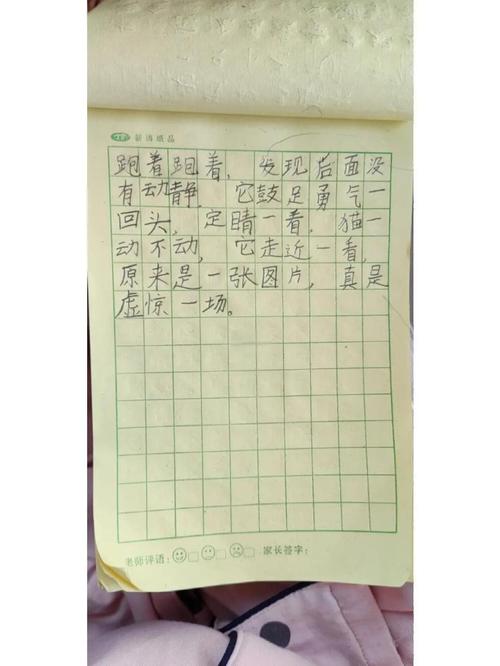 新涛纸品
跑着跑着，发现后面没
有动静，它鼓足勇气一
回头，定睛一看，猫一
动不动，它走近一看，
原来是一张图片，真是
虚惊一场。
老师评语：
家长签字：